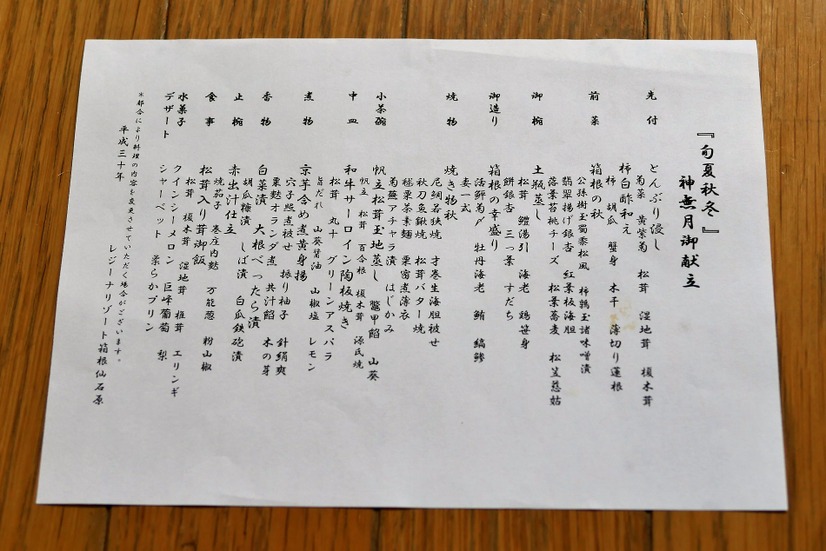 『旬夏秋冬』
神無月御献立
先付
とんぶり浸し
菊菜 黄紫菊 松茸 湿地茸 榎木茸
柿白酢和え
柿 胡瓜 蟹身 木干 薄切り蓮根
前菜
箱根の秋
公孫樹玉蜀黍松風 柿鶉玉諸味噌漬
翡翠揚げ銀杏 紅葉板海胆
落葉苔桃チーズ 松葉蕎麦 松笠慈姑
御椀
土瓶蒸し
松茸 鱧湯引 海老 鶏笹身
餅銀杏 三つ葉 すだち
御造り
箱根の幸盛り
活鮮菊〆 牡丹海老 鮪 縞鯵
妻一式
焼物
焼き物秋
尼鯛若狭焼 才巻生海胆被せ
秋刀魚鍬焼 松茸バター焼
毬栗茶素麺 栗密煮薄衣
菊蕪アチャラ漬 はじかみ
小茶碗
帆立松茸玉地蒸し 鼈甲餡 山葵
帆立 松茸 百合根 榎木茸 源氏焼
中皿
和牛サーロイン陶板焼き
松茸 丸十 グリーンアスパラ
旨だれ 山葵醤油 山椒塩 レモン
煮物
京芋含め煮黄身揚
穴子照煮被せ 振り柚子 針絹爽
粟麩オランダ煮 共汁餡 木の芽
香物
白菜漬 大根べったら漬
胡瓜糠漬 しば漬 白瓜鉄砲漬
止椀
赤出汁仕立
焼茄子 巻庄内麩 万能葱 粉山椒
食事
松茸入り茸御飯
松茸 榎木茸 湿地茸 椎茸 エリンギ
水菓子
クインシーメロン 巨峰葡萄 梨
デザート
シャーベット 柔らかプリン
*都合により料理の内容を変更させていただく場合がございます。
平成三十年
レジーナリゾート箱根仙石原